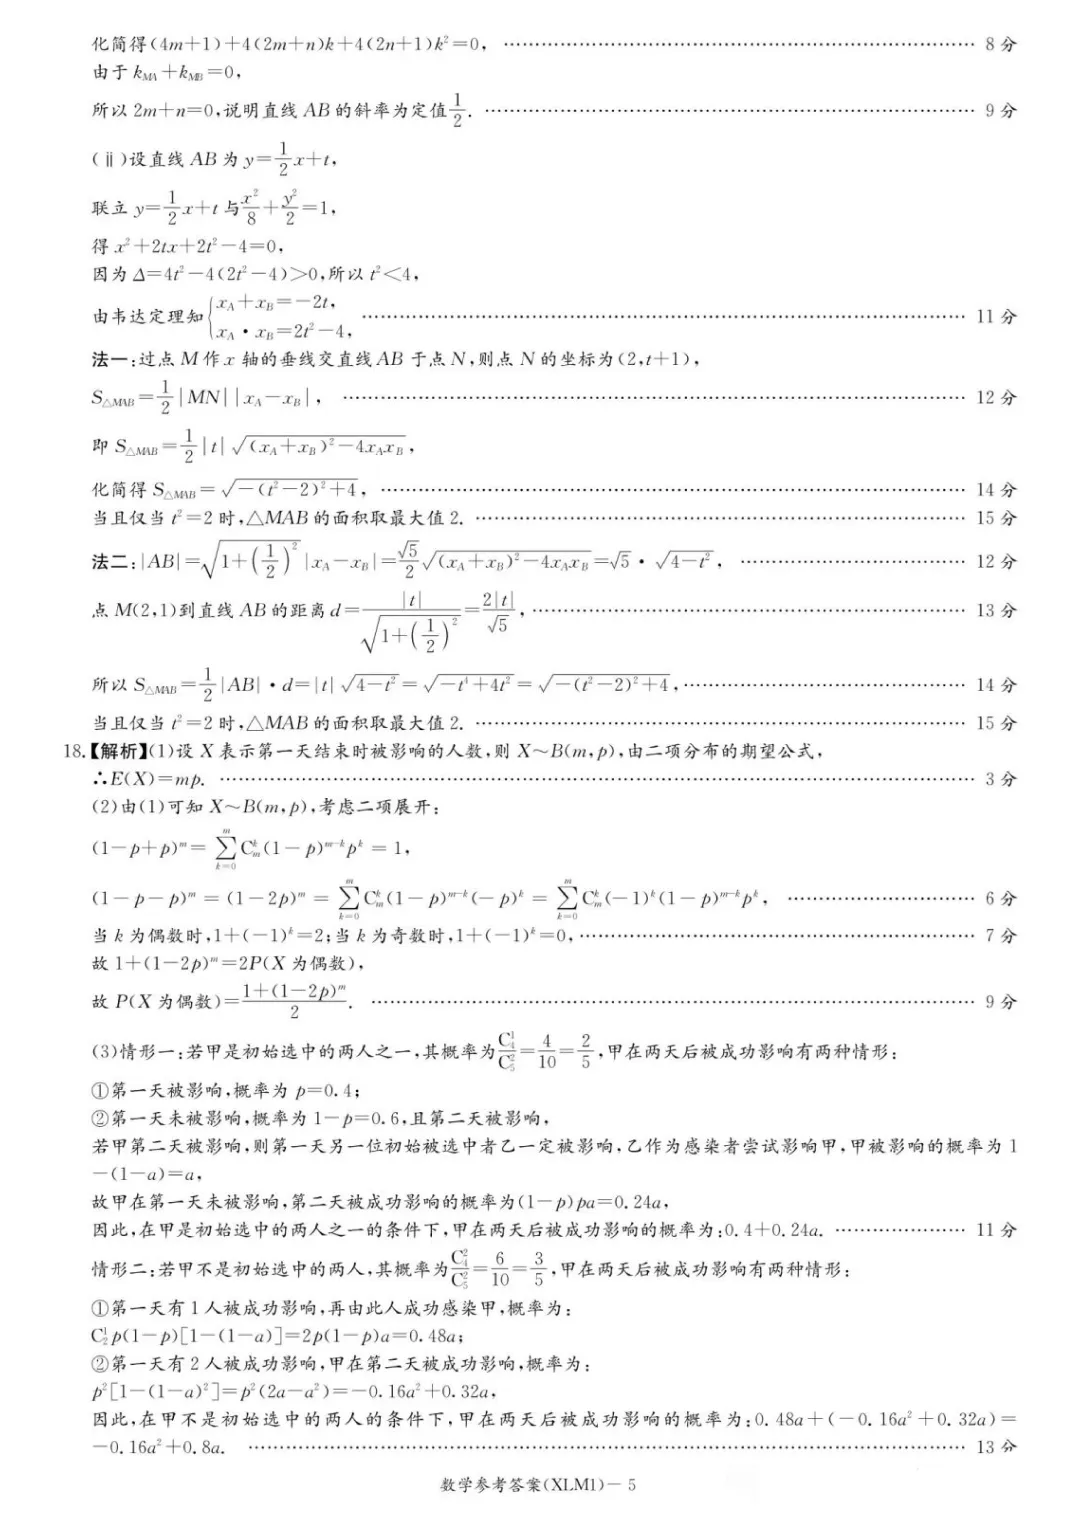 化简得(4m+1)+4(2m+n)k+4(2n+1)k²=0, …… 8 分
由于 k_{MA}+k_{MB}=0,
所以 2m+n=0,说明直线 AB 的斜率为定值 1/2. …… 9 分
(ⅱ)设直线 AB 为 y=1/2 x+t,
联立 y=1/2 x+t 与 x²/8+y²/2=1,
得 x²+2tx+2t²-4=0,
因为 Δ=4t²-4(2t²-4)>0,所以 t²<4,
由韦达定理知 { x_A+x_B=-2t, x_A·x_B=2t²-4, …… 11 分
法一:过点 M 作 x 轴的垂线交直线 AB 于点 N,则点 N 的坐标为(2,t+1),
S_{△MAB}=1/2 |MN||x_A-x_B|, …… 12 分
即 S_{△MAB}=1/2 |t| √((x_A+x_B)²-4x_Ax_B),
化简得 S_{△MAB}=√(-(t²-2)²+4), …… 14 分
当且仅当 t²=2 时,△MAB 的面积取最大值 2. …… 15 分
法二:|AB|=√(1+(1/2)²) |x_A-x_B|=√5/2 √((x_A+x_B)²-4x_Ax_B)=√5·√(4-t²), …… 12 分
点 M(2,1)到直线 AB 的距离 d=|t|/√(1+(1/2)²)=2|t|/√5, …… 13 分
所以 S_{△MAB}=1/2 |AB|·d=|t|√(4-t²)=√(-t⁴+4t²)=√(-(t²-2)²+4), …… 14 分
当且仅当 t²=2 时,△MAB 的面积取最大值 2. …… 15 分
18.【解析】(1)设 X 表示第一天结束时被影响的人数,则 X~B(m,p),由二项分布的期望公式,
∴E(X)=mp. …… 3 分
(2)由(1)可知 X~B(m,p),考虑二项展开:
(1-p+p)^m=∑_{k=0}^{m} C_m^k(1-p)^{m-k}p^k=1,
(1-p-p)^m=(1-2p)^m=∑_{k=0}^{m} C_m^k(1-p)^{m-k}(-p)^k=∑_{k=0}^{m} C_m^k(-1)^k(1-p)^{m-k}p^k, …… 6 分
当 k 为偶数时,1+(-1)^k=2;当 k 为奇数时,1+(-1)^k=0, …… 7 分
故 1+(1-2p)^m=2P(X 为偶数),
故 P(X 为偶数)=(1+(1-2p)^m)/2. …… 9 分
(3)情形一:若甲是初始选中的两人之一,其概率为 C_4^1/C_5^2=4/10=2/5,甲在两天后被成功影响有两种情形:
①第一天被影响,概率为 p=0.4;
②第一天未被影响,概率为 1-p=0.6,且第二天被影响,
若甲第二天被影响,则第一天另一位初始被选中者乙一定被影响,乙作为感染者尝试影响甲,甲被影响的概率为 1
-(1-a)=a,
故甲在第一天未被影响,第二天被成功影响的概率为(1-p)pa=0.24a,
因此,在甲是初始选中的两人之一的条件下,甲在两天后被成功影响的概率为:0.4+0.24a. …… 11 分
情形二:若甲不是初始选中的两人,其概率为 C_4^2/C_5^2=6/10=3/5,甲在两天后被成功影响有两种情形:
①第一天有 1 人被成功影响,再由此人成功感染甲,概率为:
C_2^1 p(1-p)[1-(1-a)]=2p(1-p)a=0.48a;
②第一天有 2 人被成功影响,甲在第二天被成功影响,概率为:
p²[1-(1-a)²]=p²(2a-a²)=-0.16a²+0.32a,
因此,在甲不是初始选中的两人的条件下,甲在两天后被成功影响的概率为:0.48a+(-0.16a²+0.32a)=
-0.16a²+0.8a. …… 13 分
数学参考答案(XLM1)-5